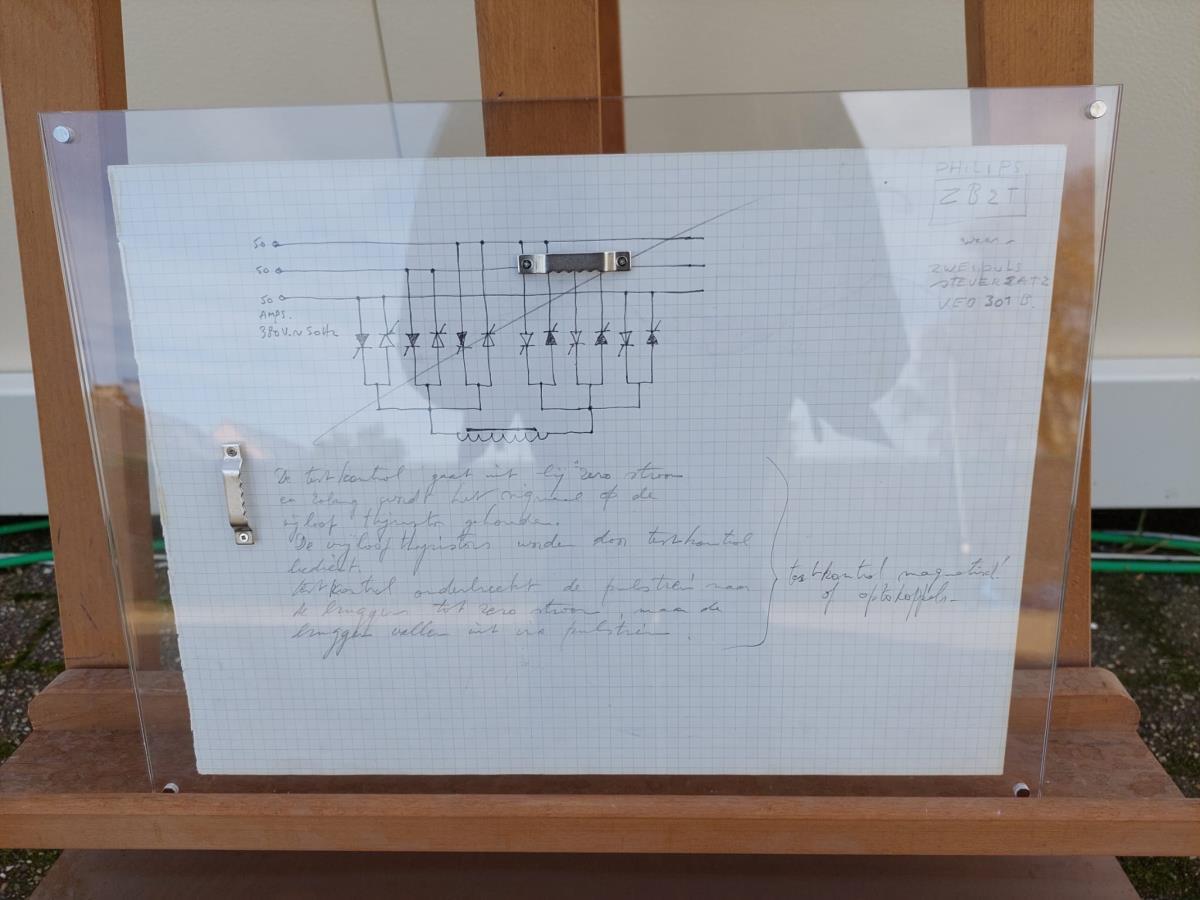 PHILIPS
ZB2T
50
50
50
AMPS.
380V.~50Hz
ZWEIPULS
STEUERSATZ
VEO 301 B.
De testkontrol gaat uit bij zero stroom
en zolang wordt het signaal op de
vrijloop thyristor gehouden.
De vrijloop thyristors worden door testkontrol
bedient.
testkontrol onderbreekt de pulstrein naar
de bruggen tot zero stroom, maar de
bruggen vallen uit via pulstrein.
testkontrol magnetisch
of optokoppels